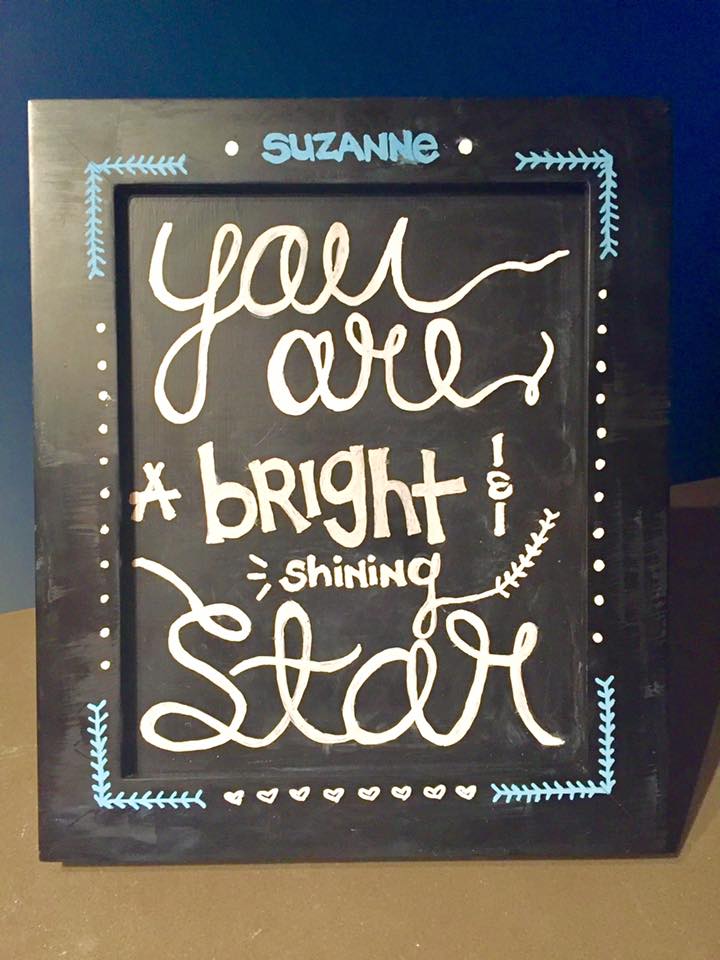 SUZANNE
you
are
A bRIght &
ShiNiNg
Star